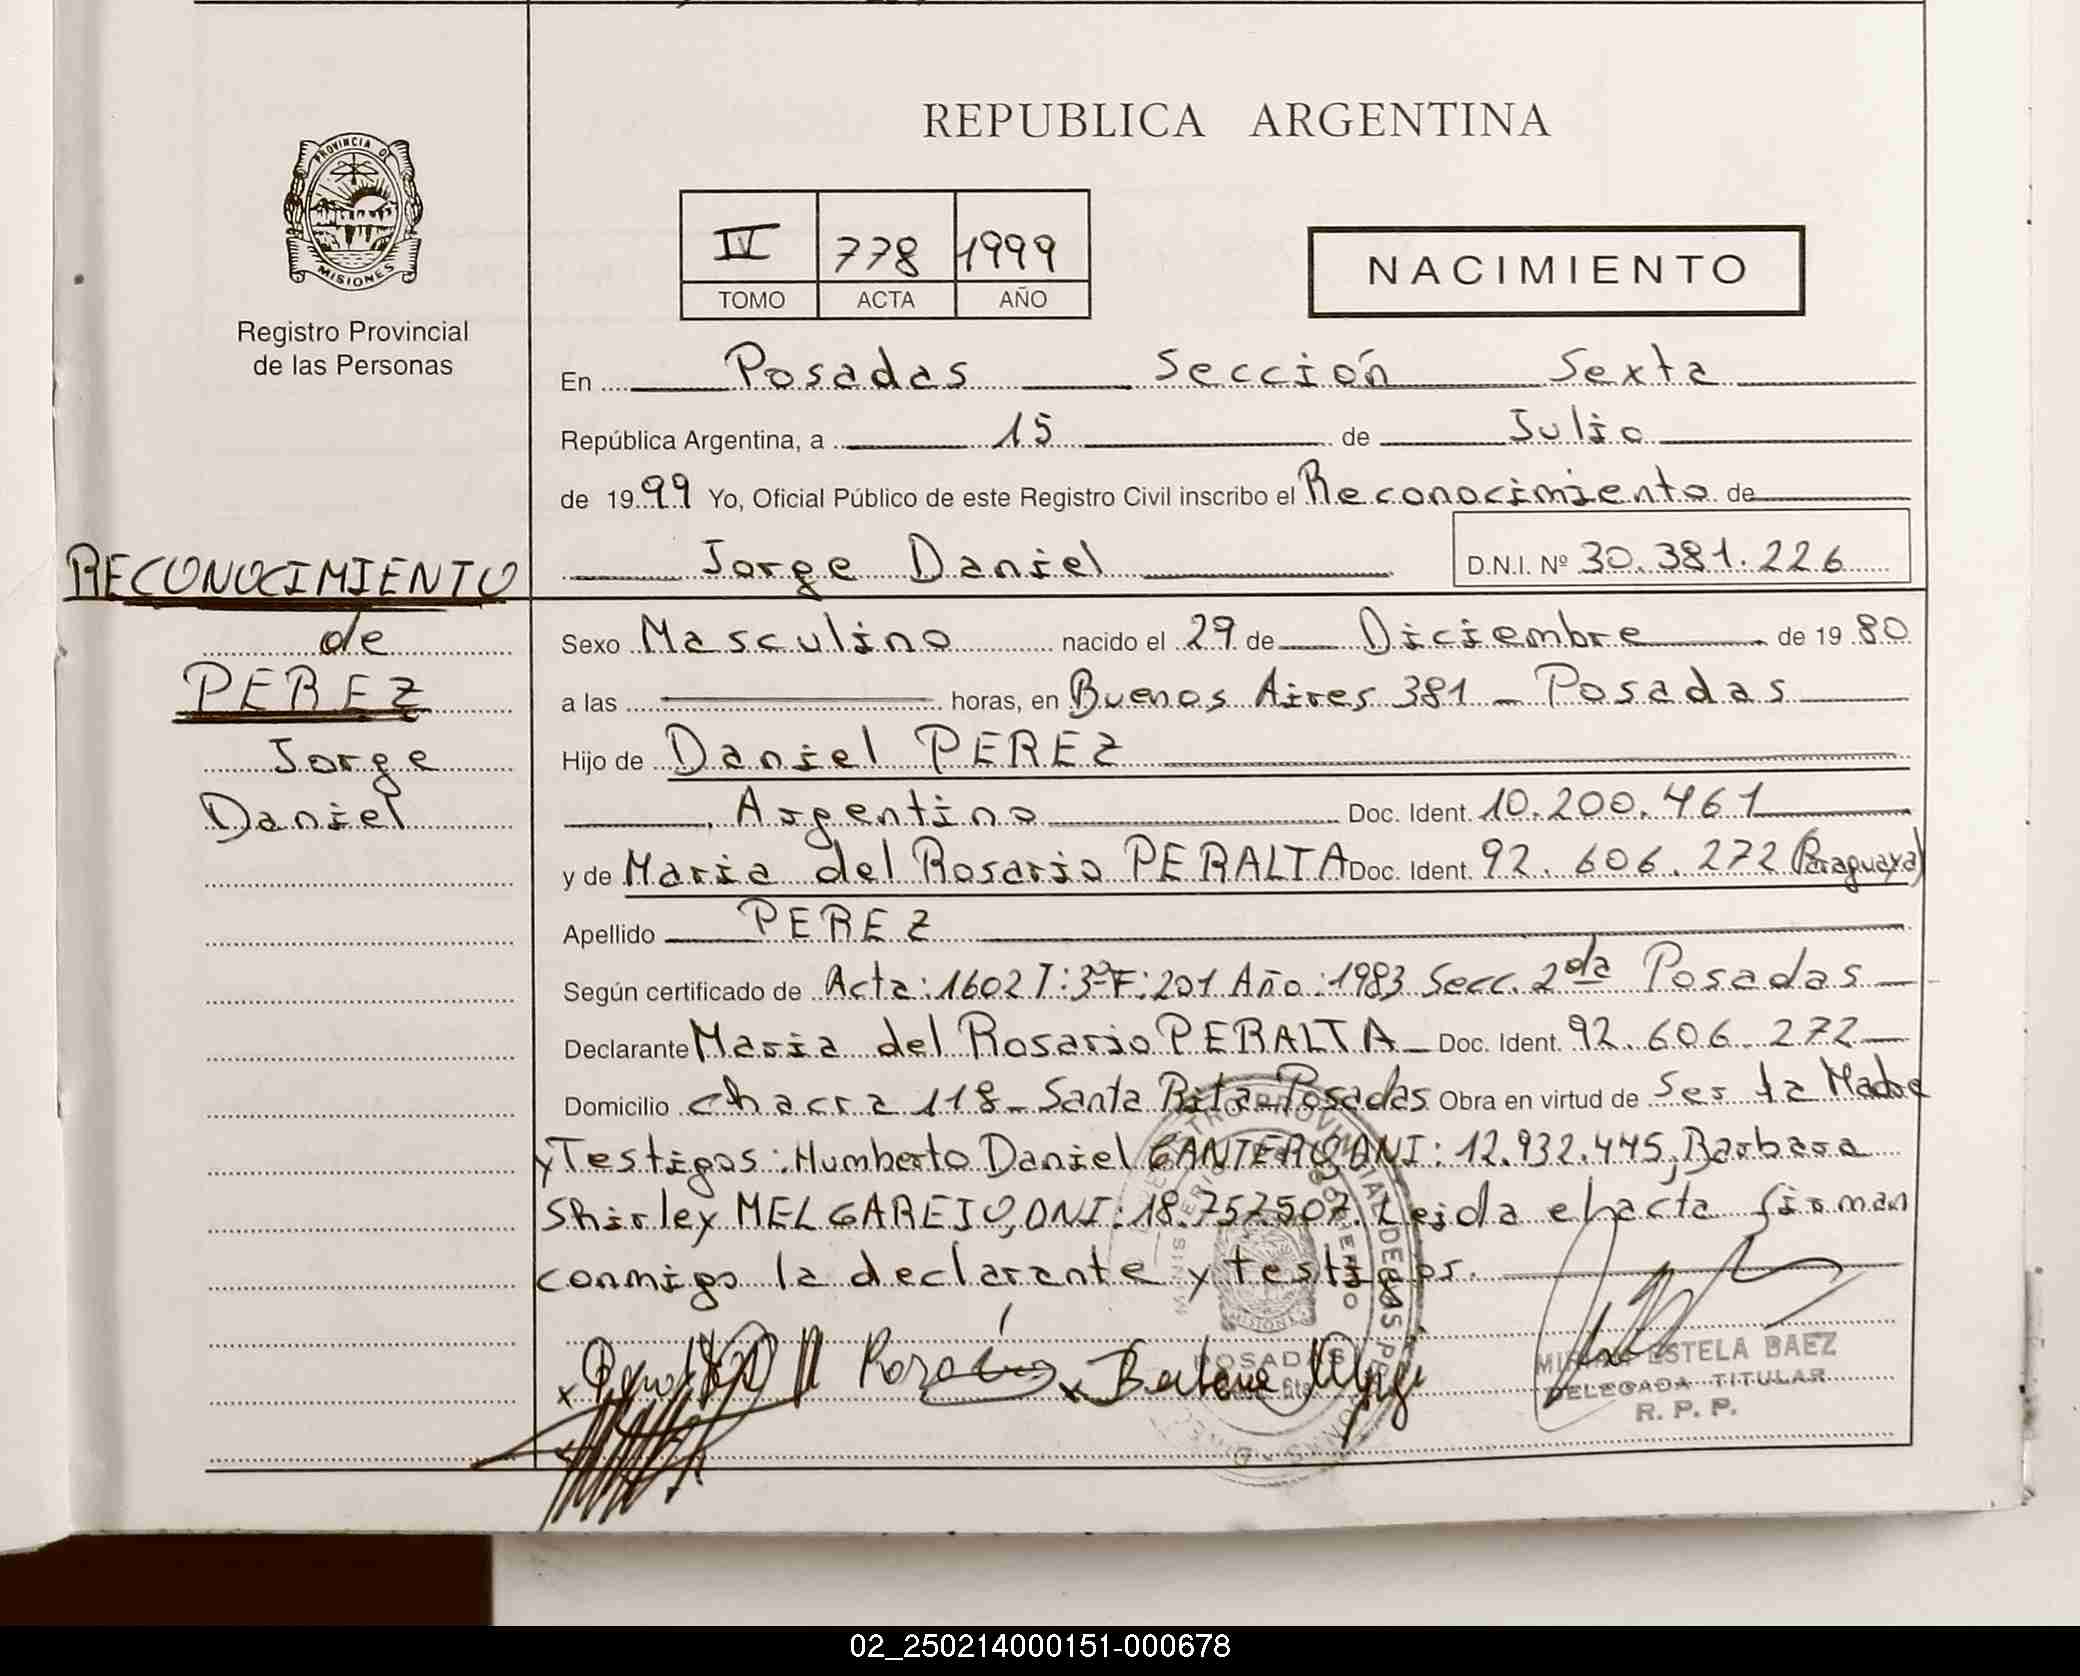 REPUBLICA ARGENTINA
PROVINCIA DE
MISIONES
Registro Provincial
de las Personas
IV 778 1999
TOMO ACTA AÑO
NACIMIENTO
En Posadas Sección Sexta
República Argentina, a 15 de Julio
de 1999 Yo, Oficial Público de este Registro Civil inscribo el Reconocimiento de
Jorge Daniel D.N.I. Nº 30.381.226
RECONOCIMIENTO
de
PEREZ
Jorge
Daniel
Sexo Masculino nacido el 29 de Diciembre de 1980
a las horas, en Buenos Aires 381 - Posadas
Hijo de Daniel PEREZ
Argentino Doc. Ident. 10.200.461
y de Maria del Rosario PERALTA Doc. Ident. 92.606.272 (Paraguaya)
Apellido PEREZ
Según certificado de Acta: 1602 T: 3º F: 201 Año: 1983 Secc. 2da Posadas
Declarante Maria del Rosario PERALTA Doc. Ident. 92.606.272
Domicilio chacra 118 - Santa Rita - Posadas Obra en virtud de Ser la Madre
y Testigos: Humberto Daniel CANTERO, DNI: 12.932.445, Barbara
Shirley MELGAREJO, DNI: 18.757.507. Leida el acta firman
conmigo la declarante y testigos.
POSADAS
ESTELA BAEZ
DELEGADA TITULAR
R. P. P.
02_250214000151-000678